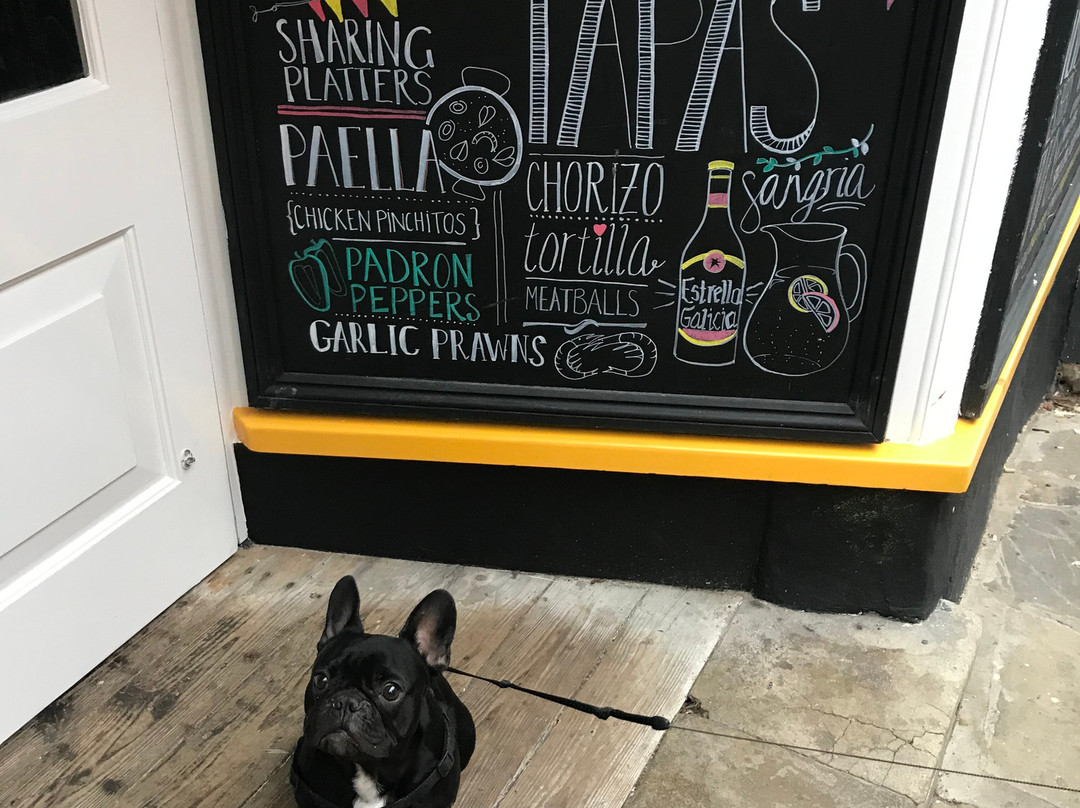 SHARING
PLATTERS
PAELLA
{CHICKEN PINCHITOS}
PADRON
PEPPERS
GARLIC PRAWNS
TAPAS
CHORIZO
tortilla
MEATBALLS
Estrella
Galicia
sangria